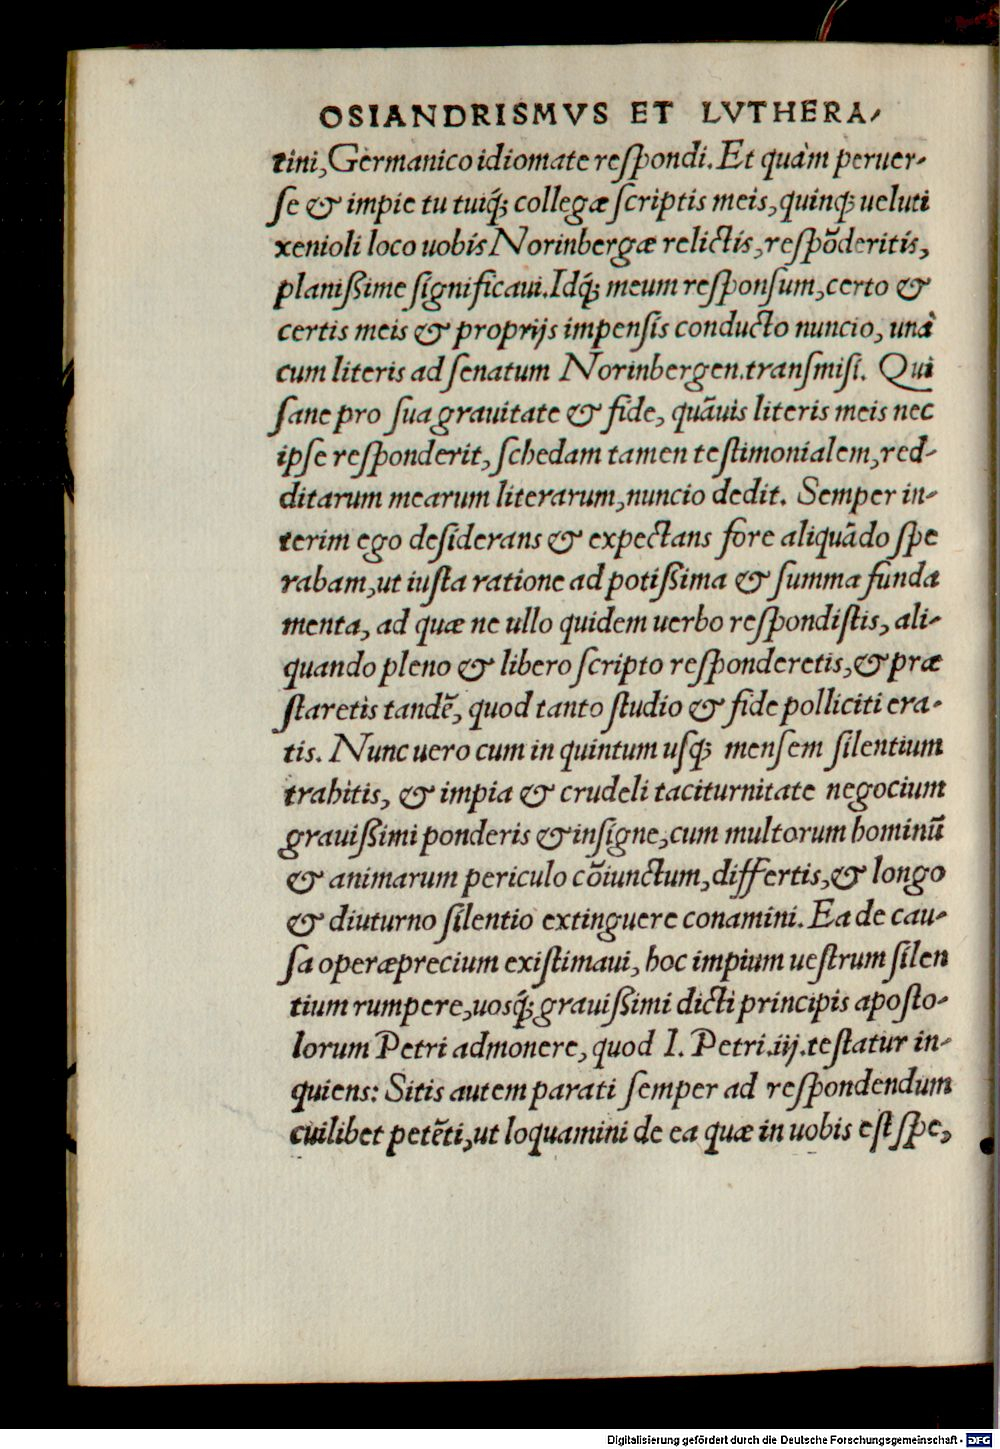 OSIANDRISMVS ET LVTHERA-
tini, Germanico idiomate reſpondi. Et quàm peruer-
ſe & impie tu tuiq́; collegæ ſcriptis meis, quinq; ueluti
xenioli loco uobis Norinbergæ relictis, reſpōderitis,
planißime ſignificaui. Idq́; meum reſponſum, certo &
certis meis & proprijs impenſis conducto nuncio, unà
cum literis ad ſenatum Norinbergen. tranſmiſi. Qui
ſane pro ſua grauitate & fide, quāuis literis meis nec
ipſe reſponderit, ſchedam tamen teſtimonialem, red-
ditarum mearum literarum, nuncio dedit. Semper in-
terim ego deſiderans & expectans fore aliquādo ſpe
rabam, ut iuſta ratione ad potißima & ſumma funda
menta, ad quæ ne ullo quidem uerbo reſpondiſtis, ali-
quando pleno & libero ſcripto reſponderetis, & præ
ſtaretis tandē, quod tanto ſtudio & fide polliciti era-
tis. Nunc uero cum in quintum uſq; menſem ſilentium
trahitis, & impia & crudeli taciturnitate negocium
grauißimi ponderis & inſigne, cum multorum hominū
& animarum periculo cōiunctum, differtis, & longo
& diuturno ſilentio extinguere conamini. Ea de cau-
ſa operæprecium exiſtimaui, hoc impium ueſtrum ſilen
tium rumpere, uosq́; grauißimi dicti principis apoſto-
lorum Petri admonere, quod 1. Petri.iij. teſtatur in-
quiens: Sitis autem parati ſemper ad reſpondendum
cuilibet petēti, ut loquamini de ea quæ in uobis eſt ſpe,
Digitalisierung gefördert durch die Deutsche Forschungsgemeinschaft - DFG